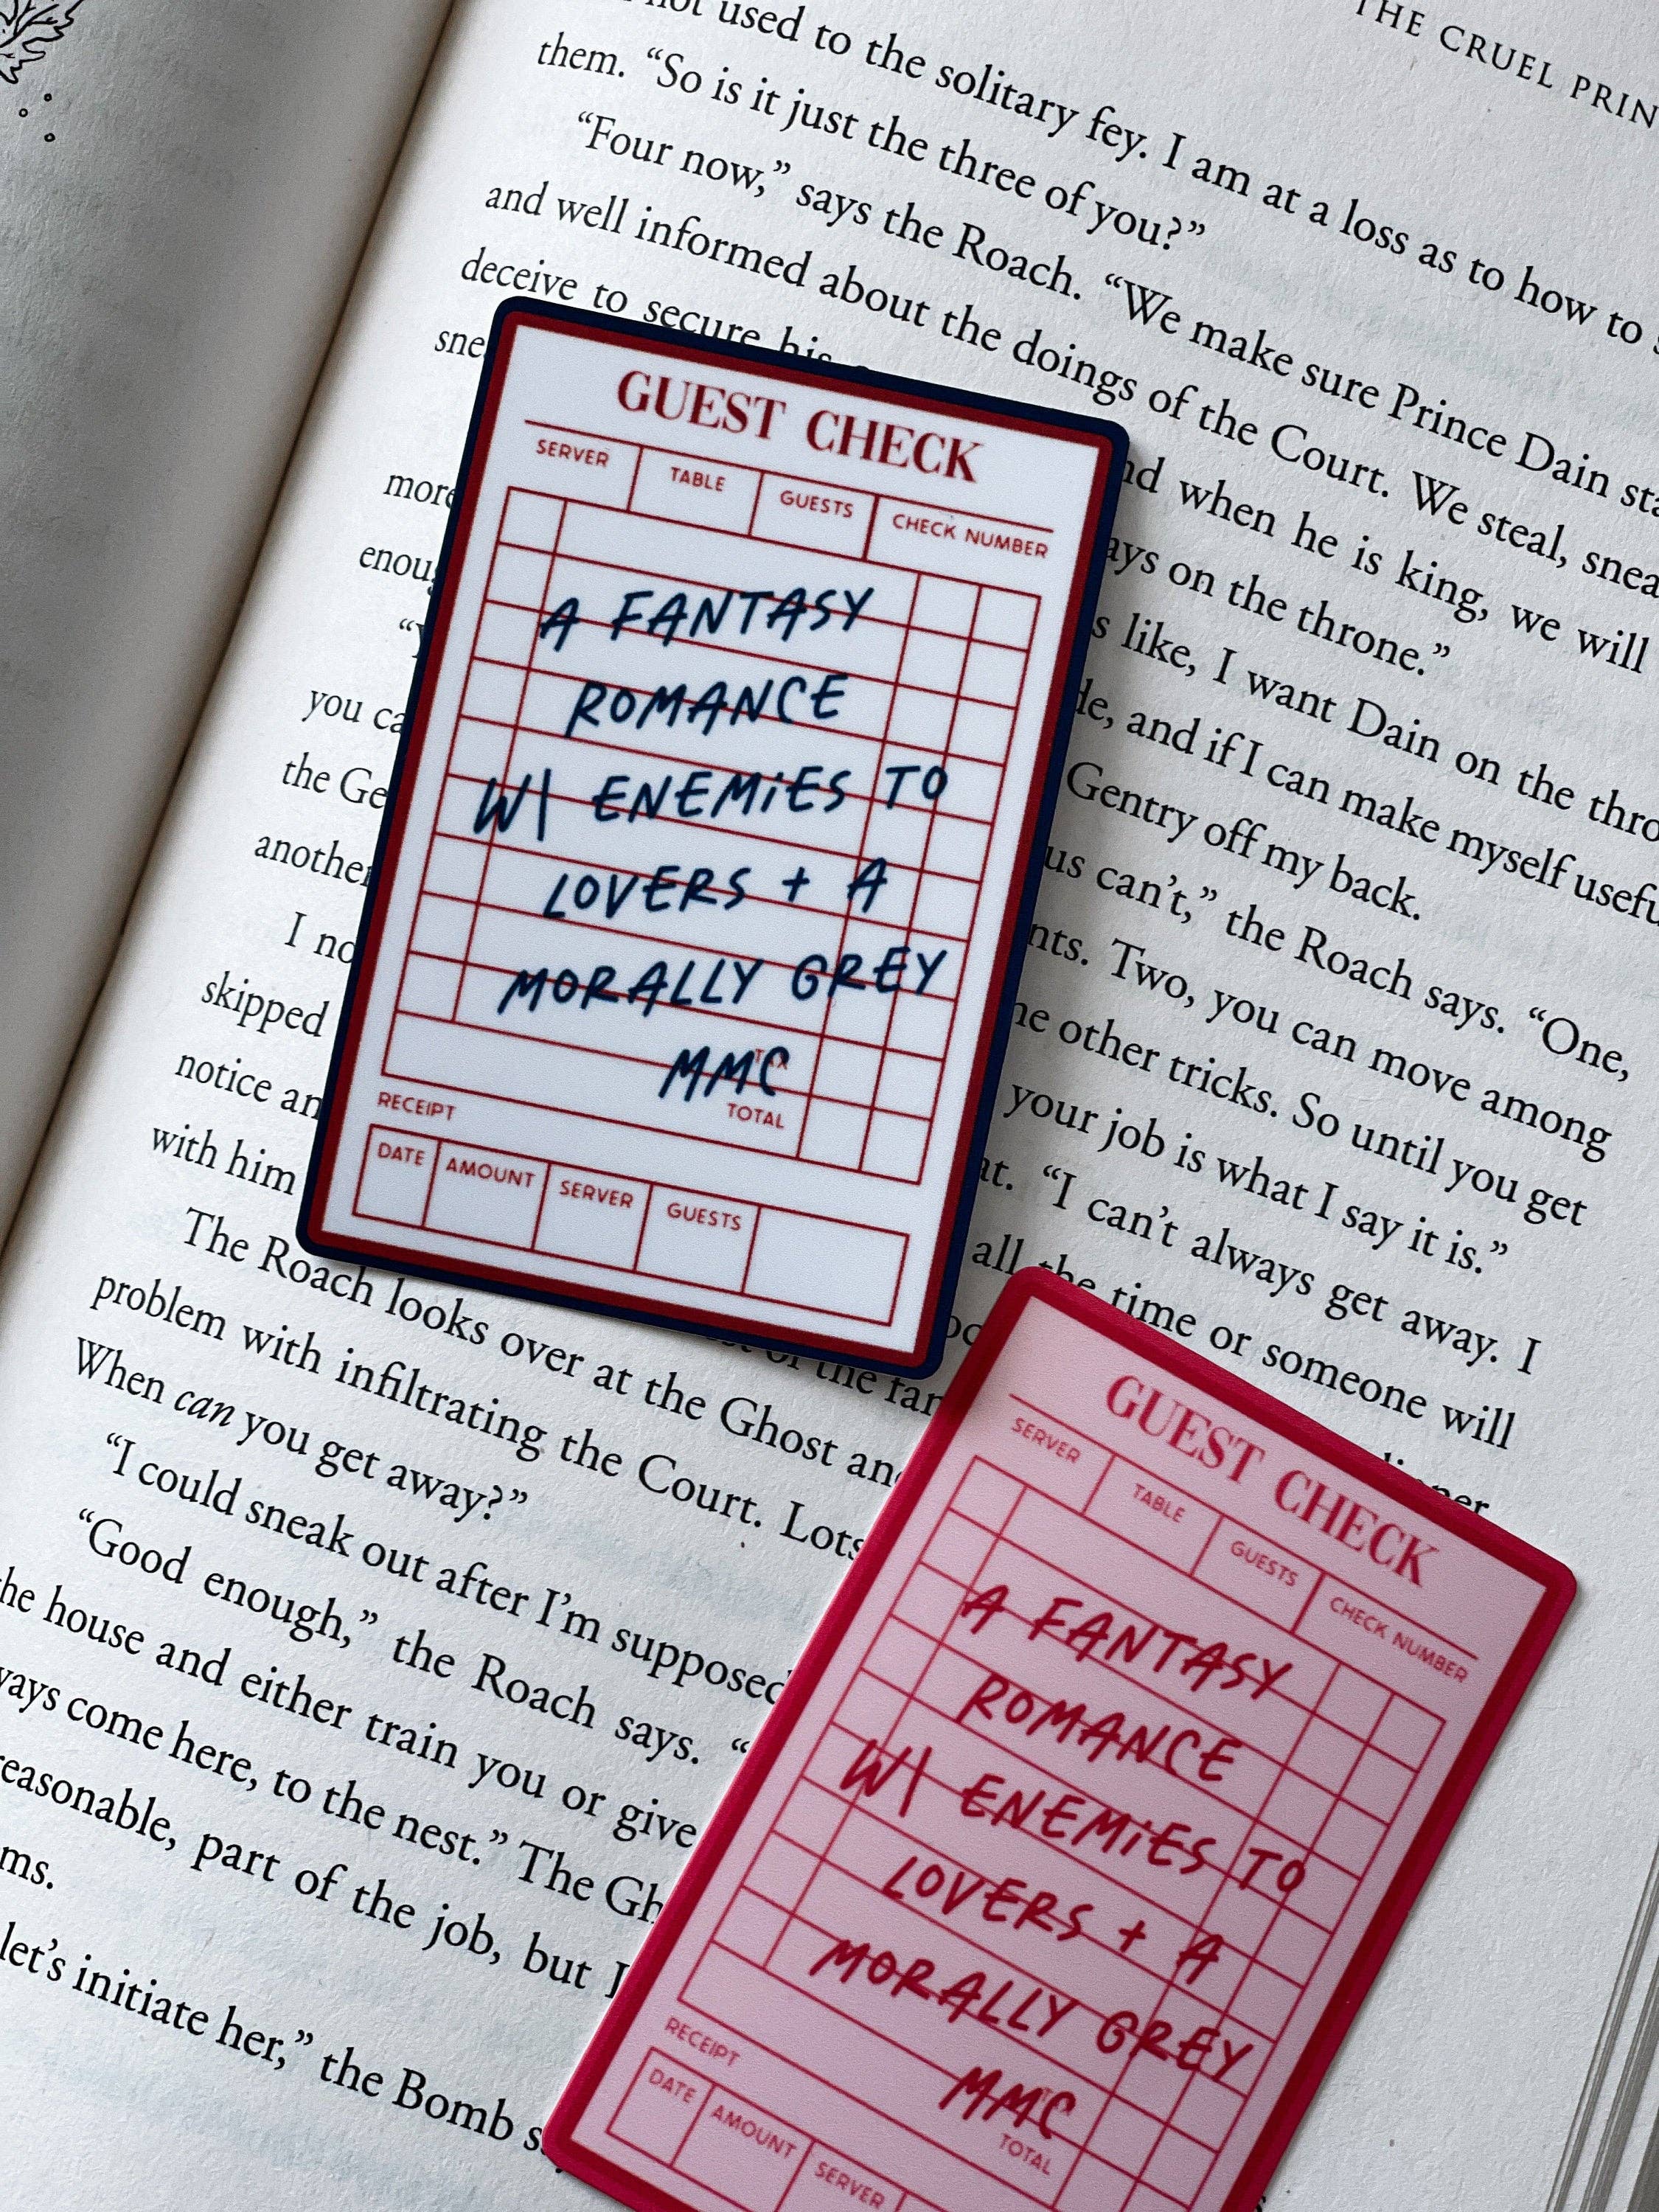 THE CRUEL
not used to the solitary fey. I am at a loss as to how to
them. “So is it just the three of you?”
“Four now,” says the Roach. “We make sure Prince Dain
and well informed about the doings of the Court. We steal,
deceive to secure his
and when he is king, we will
more
on the throne.”
like, I want Dain on the
you
and if I can make myself
the
Gentry off my back.
another
us can’t,” the Roach says. “One,
I
Two, you can move among
skipped
other tricks. So until you get
notice
your job is what I say it is.”
with him
“I can’t always get away. I
The Roach looks over at the Ghost
all the time or someone will
problem with infiltrating the Court. Lots
When can you get away?”
“I could sneak out after I’m supposed
“Good enough,” the Roach says. “
the house and either train you or give
come here, to the nest.” The
reasonable, part of the job, but I
let’s initiate her,” the Bomb
GUEST CHECK
SERVER TABLE GUESTS CHECK NUMBER
A FANTASY
ROMANCE
W| ENEMIES TO
LOVERS + A
MORALLY GREY
MMC
TAX
RECEIPT TOTAL
DATE AMOUNT SERVER GUESTS
GUEST CHECK
SERVER TABLE GUESTS CHECK NUMBER
A FANTASY
ROMANCE
W| ENEMIES TO
LOVERS + A
MORALLY GREY
MMC
RECEIPT TOTAL
DATE AMOUNT SERVER